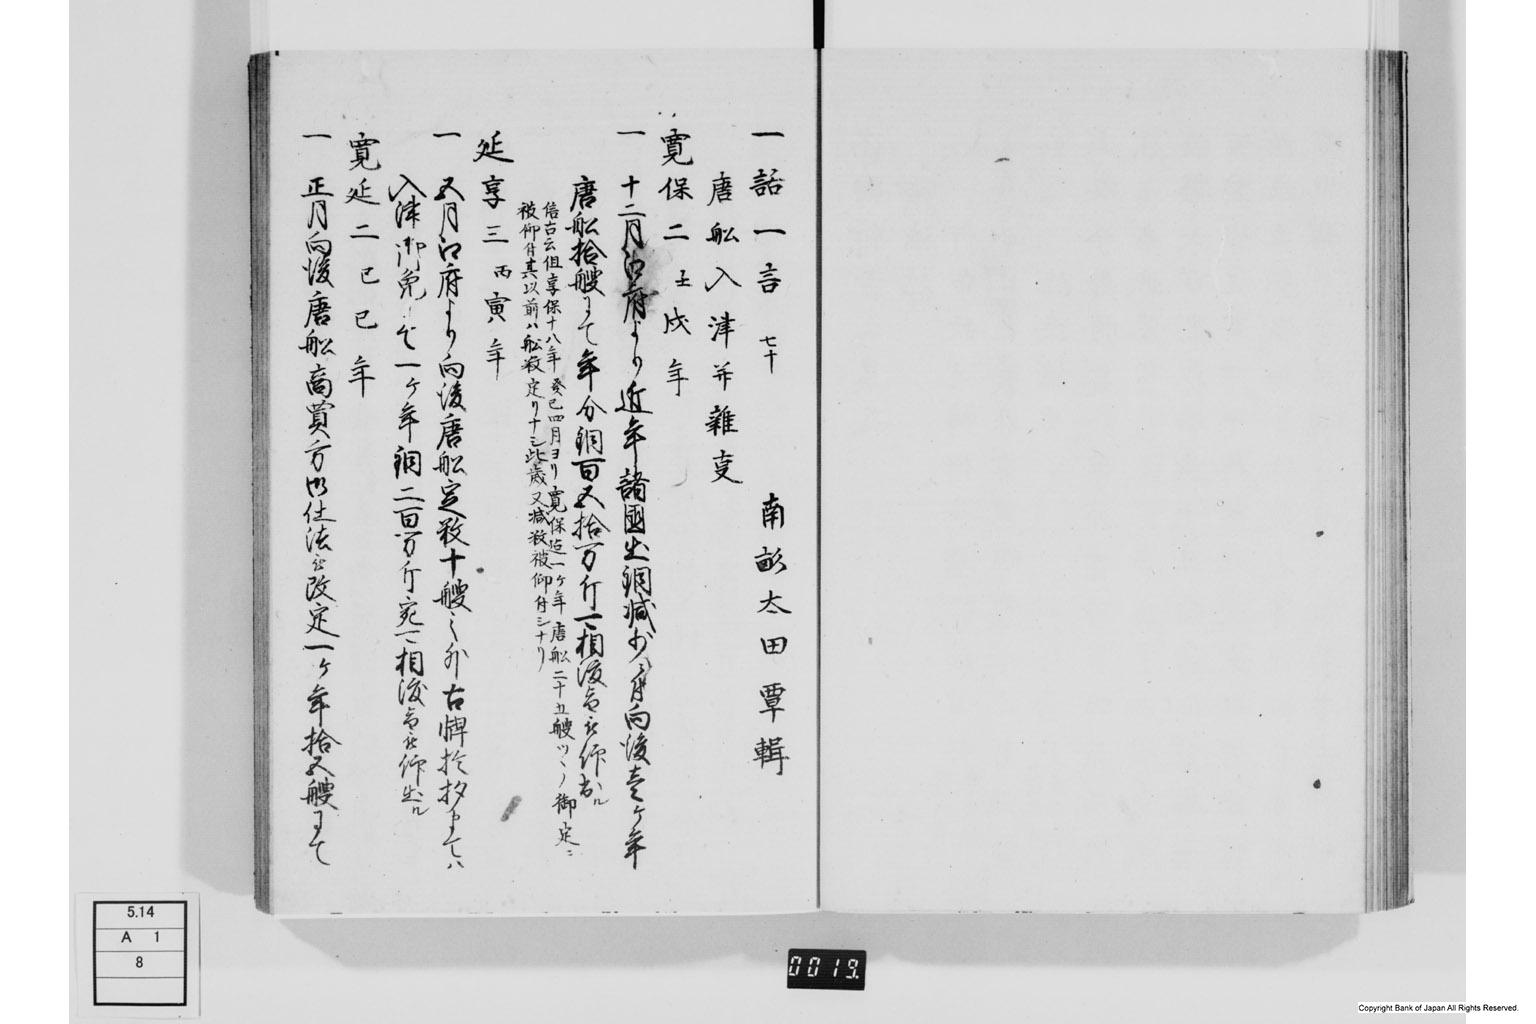 一話一言 七十 南畝太田覃輯
唐舩入津并雜叓
寛保二壬戌年
一 十二月江府より近年諸國出銅減少ニ付向後壱ヶ年
唐舩拾艘にて年分銅百五拾万斤可相渡旨被仰出ル
信古云但享保十八年癸巳四月ヨリ寛保迄一ヶ年唐舩二十五艘ツヽノ御定ニ
被仰付其以前ハ舩数定リナシ此歳又減数被仰付シナリ
延享三丙寅年
一 五月江府より向後唐舩定数十艘之外古牌於抄来てハ
入津御免ニて一ヶ年銅二百万斤宛可相渡旨被仰出ル
寛延二己巳年
一 正月向後唐舩商買方御仕法被改定一ヶ年拾五艘にて
5.14
A 1
8
0019.
Copyright Bank of Japan All Rights Reserved.